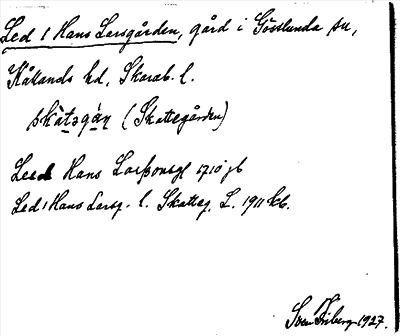 Led 1 Hans Larsgården, gård i Gösslunda sn,
Kållands hd, Skarab. l.
skàtəgàṇ (Skattegården)
Leed Hans Larßonsgl 1710 jb
Led 1 Hans Larsg. l. Skatteg. L. 1911 kb.
Sven Friberg 1927.